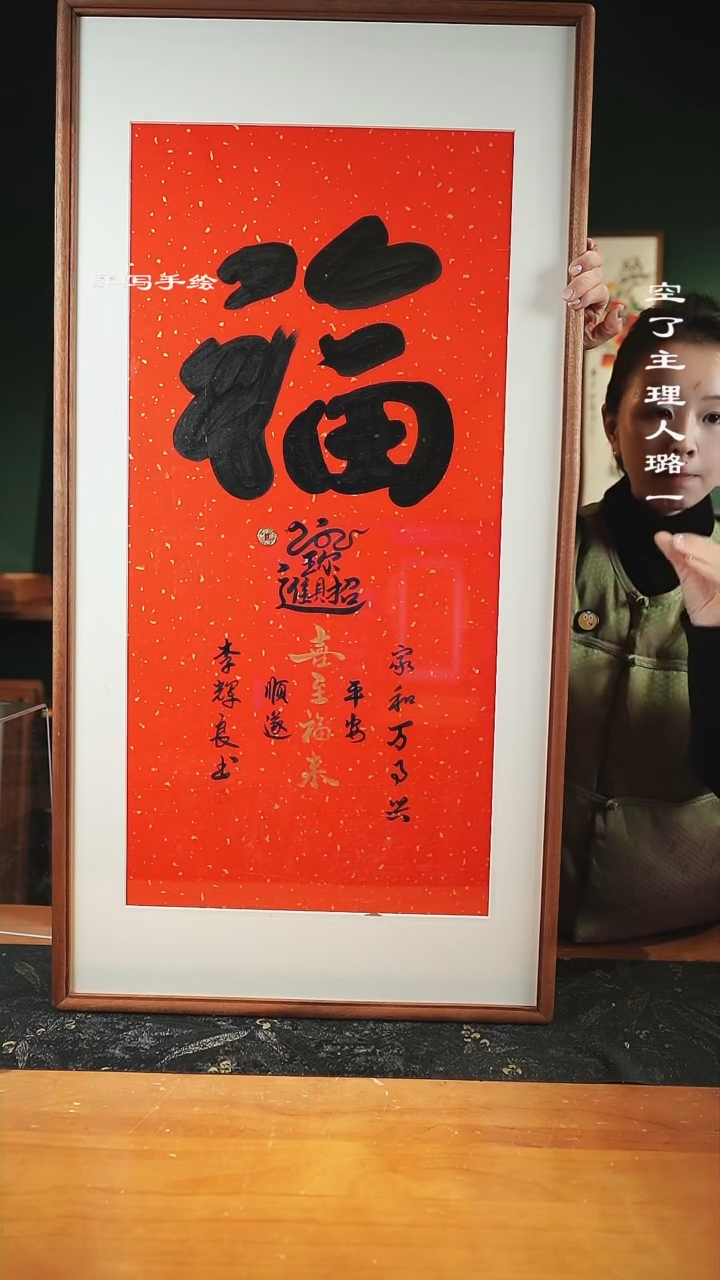 手写手绘
空了主理人璐一
福
招財進寳
家和万事兴
平安
喜至福来
顺遂
李辉良书